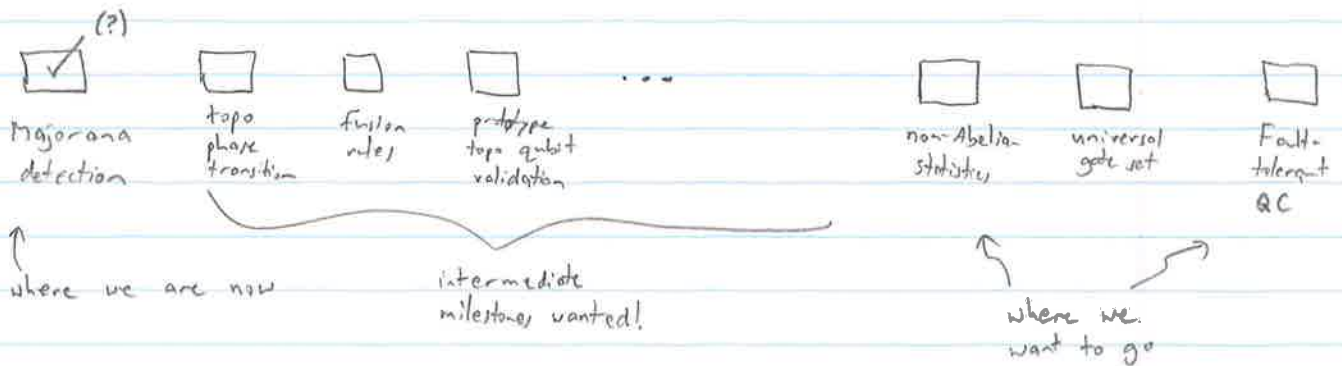 (?)
Majorana
detection
topo
phase
transition
fusion
rules
prototype
topo qubit
validation
...
non-Abelian
statistics
universal
gate set
Fault-
tolerant
QC
where we are now
intermediate
milestones wanted!
where we
want to go